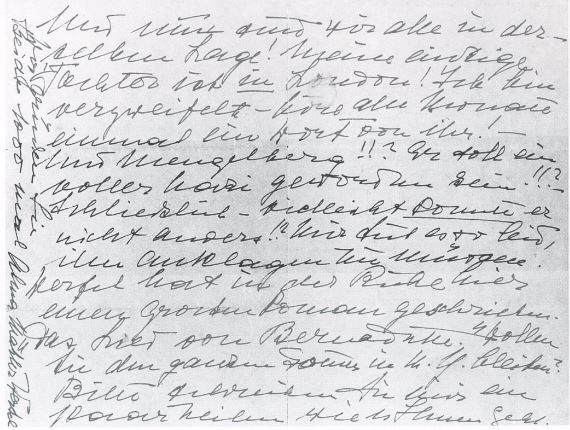 Und nun sind wir alle in der-
selben Lage! Meine einzige
Tochter ist in London! Ich bin
verzweifelt - höre alle Monate
einmal ein Wort von ihr! -
Und Mengelberg!!? Er soll ein
voller Nazi geworden sein!!?
Schliesslich - vielleicht konnte er
nicht anders!!? Mir tut es so leid,
ihn anklagen zu müssen.
Werfel hat in der Ruhe hier
einen grossen Roman geschrieben.
Das Lied von Bernadette. Wollen
Sie den ganzen in N. Y. bleiben?
Bitte schreiben Sie mir ein
paar Zeilen wie es Ihnen geht.
Wir Sie
beide 1000 mal Alma Mahler Werfel